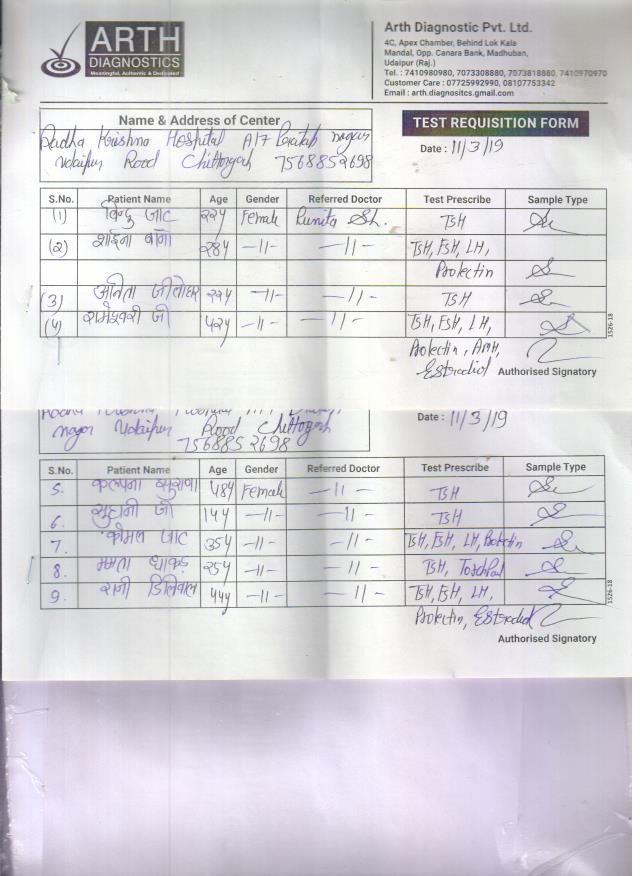 ARTH
DIAGNOSTICS
Meaningful, Authentic & Dedicated
Arth Diagnostic Pvt. Ltd.
4C, Apex Chamber, Behind Lok Kala
Mandal, Opp. Canara Bank, Madhuban,
Udaipur (Raj.)
Tel. : 7410980980, 7073308880, 7073818880, 7410970970
Customer Care : 07725992990, 08107753342
Email : arth.diagnositcs.gmail.com
Name & Address of Center
TEST REQUISITION FORM
Radha Krishna Hospital A17 Pratap nagar
Udaipur Road Chittorgah 7568852698
Date : 11/3/19
S.No. Patient Name Age Gender Referred Doctor Test Prescribe Sample Type
(1) जाट २२y Female Punita Sh. TSH
(2) शाईना बानो २8y -11- -11- TSH, FSH, LH,
Prolectin
(3) अनिता २२y -11- -11- TSH
(4) रामेश्वरी जी ५२y -11- -11- TSH, FSH, LH,
Prolectin, AMH,
Estradiol
Authorised Signatory
1526-18
nagar Udaipur Road Chittorgah
7568852698
Date : 11/3/19
S.No. Patient Name Age Gender Referred Doctor Test Prescribe Sample Type
5. कल्पना 48y Female -11- TSH
6. जी 1४y -11- -11- TSH
7. कोमल जाट 35y -11- -11- TSH, FSH, LH, Prolectin
8. ममता धाकड़ २5y -11- -11- TSH,
9. रानी 44y -11- -11- TSH, FSH, LH,
Prolectin, Estradiol
Authorised Signatory
1526-18